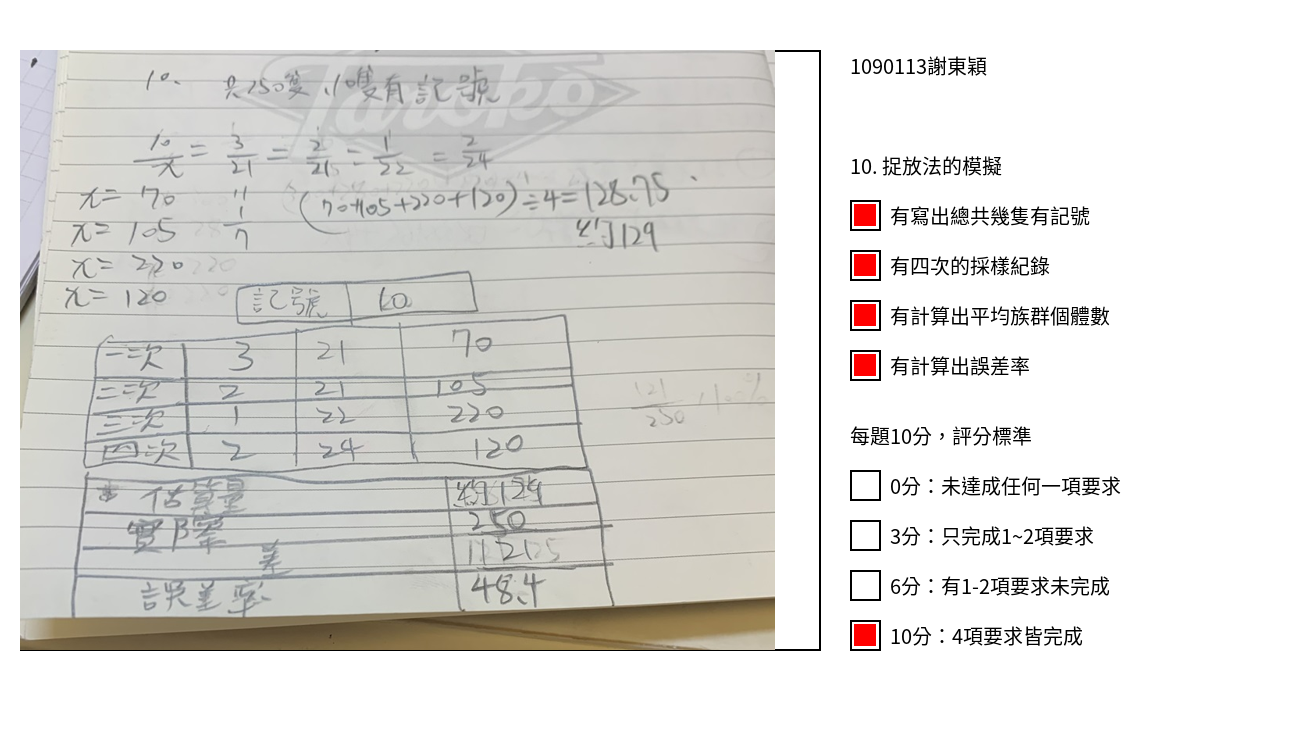 10. 共250隻，10隻有記號
10/x = 3/21 = 2/21 = 1/22 = 2/24
x = 70 " 1/7 (70+105+220+120)÷4=128.75
x = 105 約129
x = 220
x = 120
記號 10
一次 3 21 70
二次 2 21 105
三次 1 22 220
四次 2 24 120
估算量 約129
實際 250
差 121
誤差率 48.4
121/250 ×100%
Taroko
1090113謝東穎
10. 捉放法的模擬
有寫出總共幾隻有記號
有四次的採樣紀錄
有計算出平均族群個體數
有計算出誤差率
每題10分，評分標準
0分：未達成任何一項要求
3分：只完成1~2項要求
6分：有1-2項要求未完成
10分：4項要求皆完成